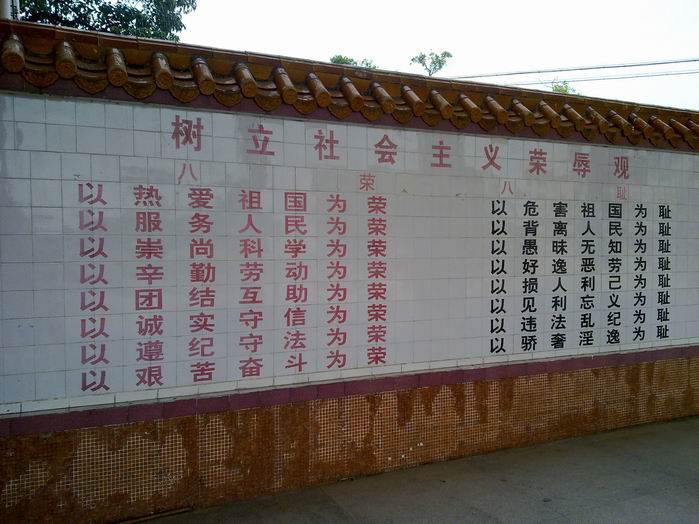 树立社会主义荣辱观
八荣
以热爱祖国为荣
以服务人民为荣
以崇尚科学为荣
以辛勤劳动为荣
以团结互助为荣
以诚实守信为荣
以遵纪守法为荣
以艰苦奋斗为荣
八耻
以危害祖国为耻
以背离人民为耻
以愚昧无知为耻
以好逸恶劳为耻
以损人利己为耻
以见利忘义为耻
以违法乱纪为耻
以骄奢淫逸为耻